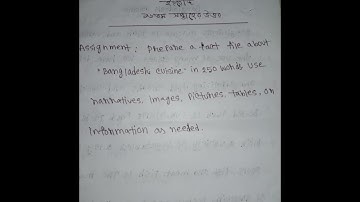 Assignment: Prepare a fact file about
"Bangladeshi Cuisine" in 250 words use
narratives, images, pictures, tables, or
information as needed.